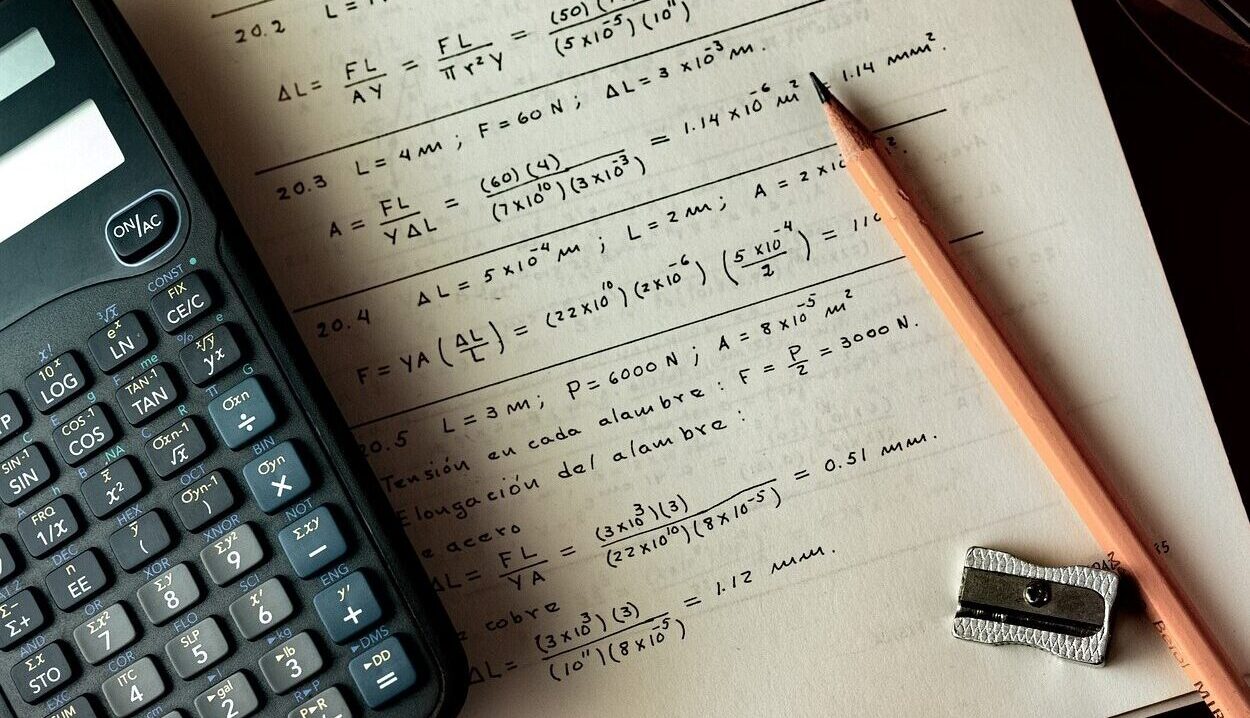 20.2 L = 1
ΔL = FL/AY = FL/πr²Y = (50)(/(5×10⁻⁵)(10¹¹)
20.3 L = 4 m ; F = 60 N ; ΔL = 3 ×10⁻³ m.
A = FL/YΔL = (60)(4)/(7×10¹⁰)(3×10⁻³) = 1.14 ×10⁻⁶ m² = 1.14 mm².
20.4 ΔL = 5 ×10⁻⁴ m ; L = 2 m ; A = 2 ×10 ².
F = YA (ΔL/L) = (22×10¹⁰)(2×10⁻⁶) (5 ×10⁻⁴/2) = 110
20.5 L = 3 m ; P = 6000 N ; A = 8 ×10⁻⁵ m²
Tensión en cada alambre : F = P/2 = 3000 N.
Elongación del alambre :
e acero
ΔL = FL/YA = (3×10³)(3)/(22×10¹⁰)(8×10⁻⁵) = 0.51 mm.
cobre
ΔL = (3×10³)(3)/(10¹¹)(8×10⁻⁵) = 1.12 mm.
ON/AC
CONST
FIX
CE/C
³√x
eˣ
LN
% e
ˣ√y
yx
x!
10ˣ
LOG
F me
TAN⁻¹
TAN
π G
σxn
÷
P
E g
COS⁻¹
COS
C R
σxn-1
√x
BIN
σyn
×
C
SIN⁻¹
SIN
B NA
x̄
x²
OCT
σyn-1
)
NOT
Σxy
−
A
FRQ
1/x
HEX
ȳ
(
XNOR
Σy²
9
ENG
y'
+
DEC
n
EE
XOR
Σy
8
SCI
x'
6
▶DMS
▶DD
=
Σ−
Σ+
OR
Σx²
7
FLO
SLP
5
▶kg
▶lb
3
AND
Σx
STO
COR
ITC
4
▶l
▶gal
2
R▶P
P▶R
EXC
SUM
cm